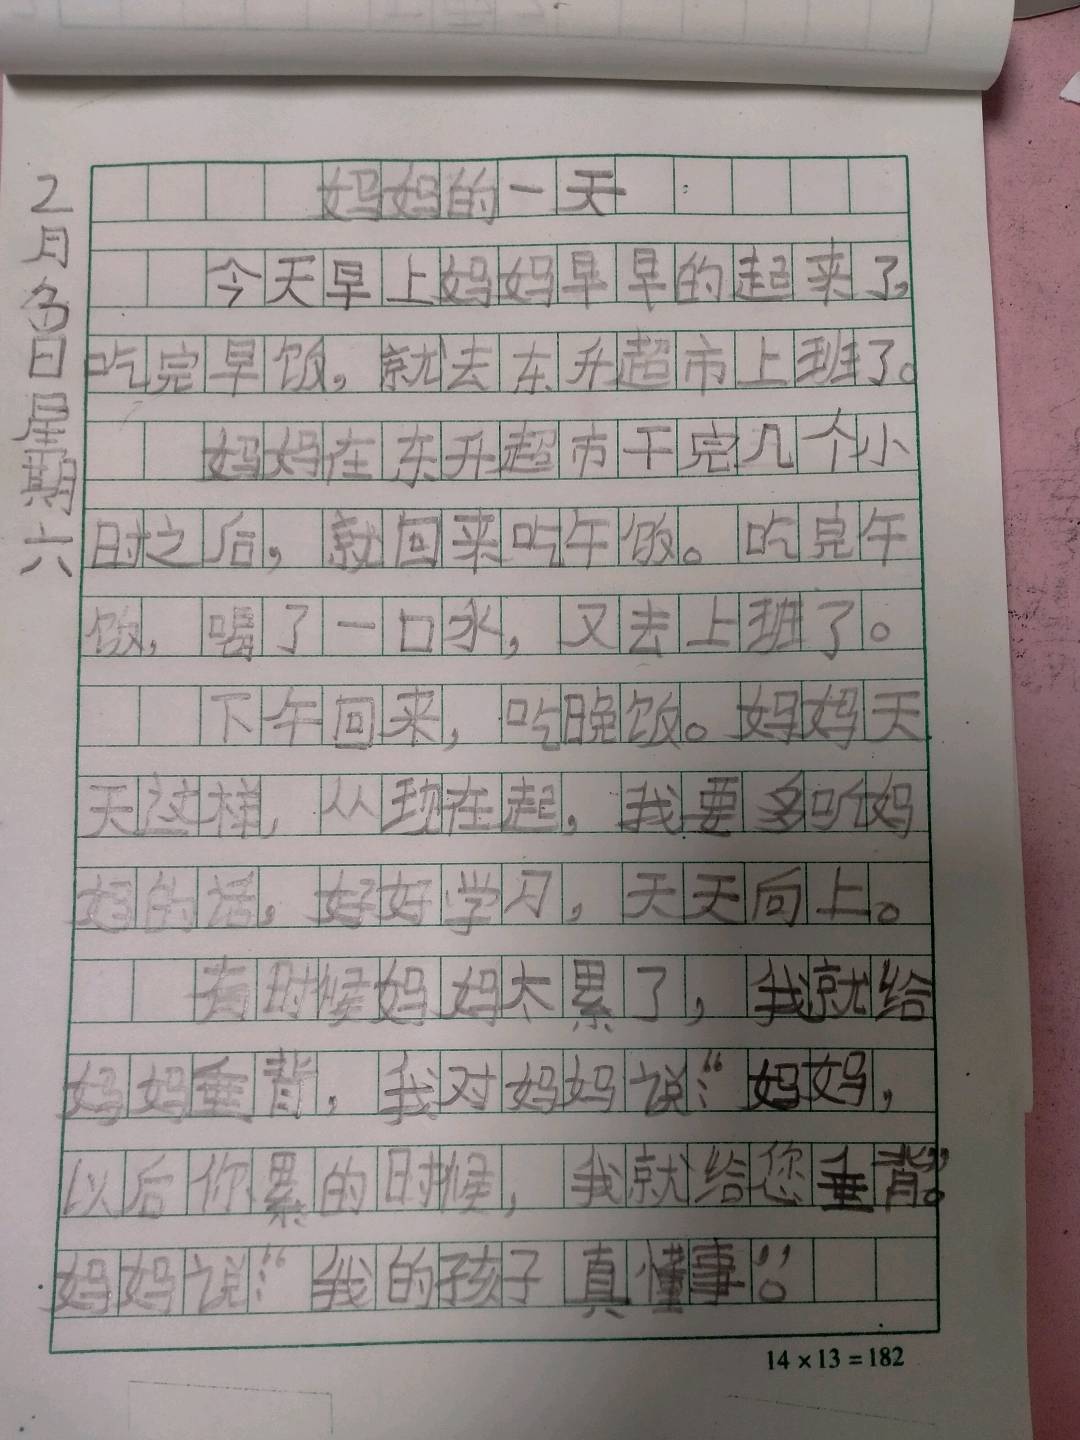 2月6日星期六
妈妈的一天
今天早上妈妈早早的起来了,
吃完早饭,就去东升超市上班了。
妈妈在东升超市干完几个小
时之后,就回来吃午饭。吃完午
饭,喝了一口水,又去上班了。
下午回来,吃晚饭。妈妈天
天这样,从现在起,我要多听妈
妈的话,好好学习,天天向上。
有时候妈妈太累了,我就给
妈妈垂背,我对妈妈说:“妈妈,
以后你累的时候,我就给您垂背。”
妈妈说:“我的孩子真懂事。”
14×13=182